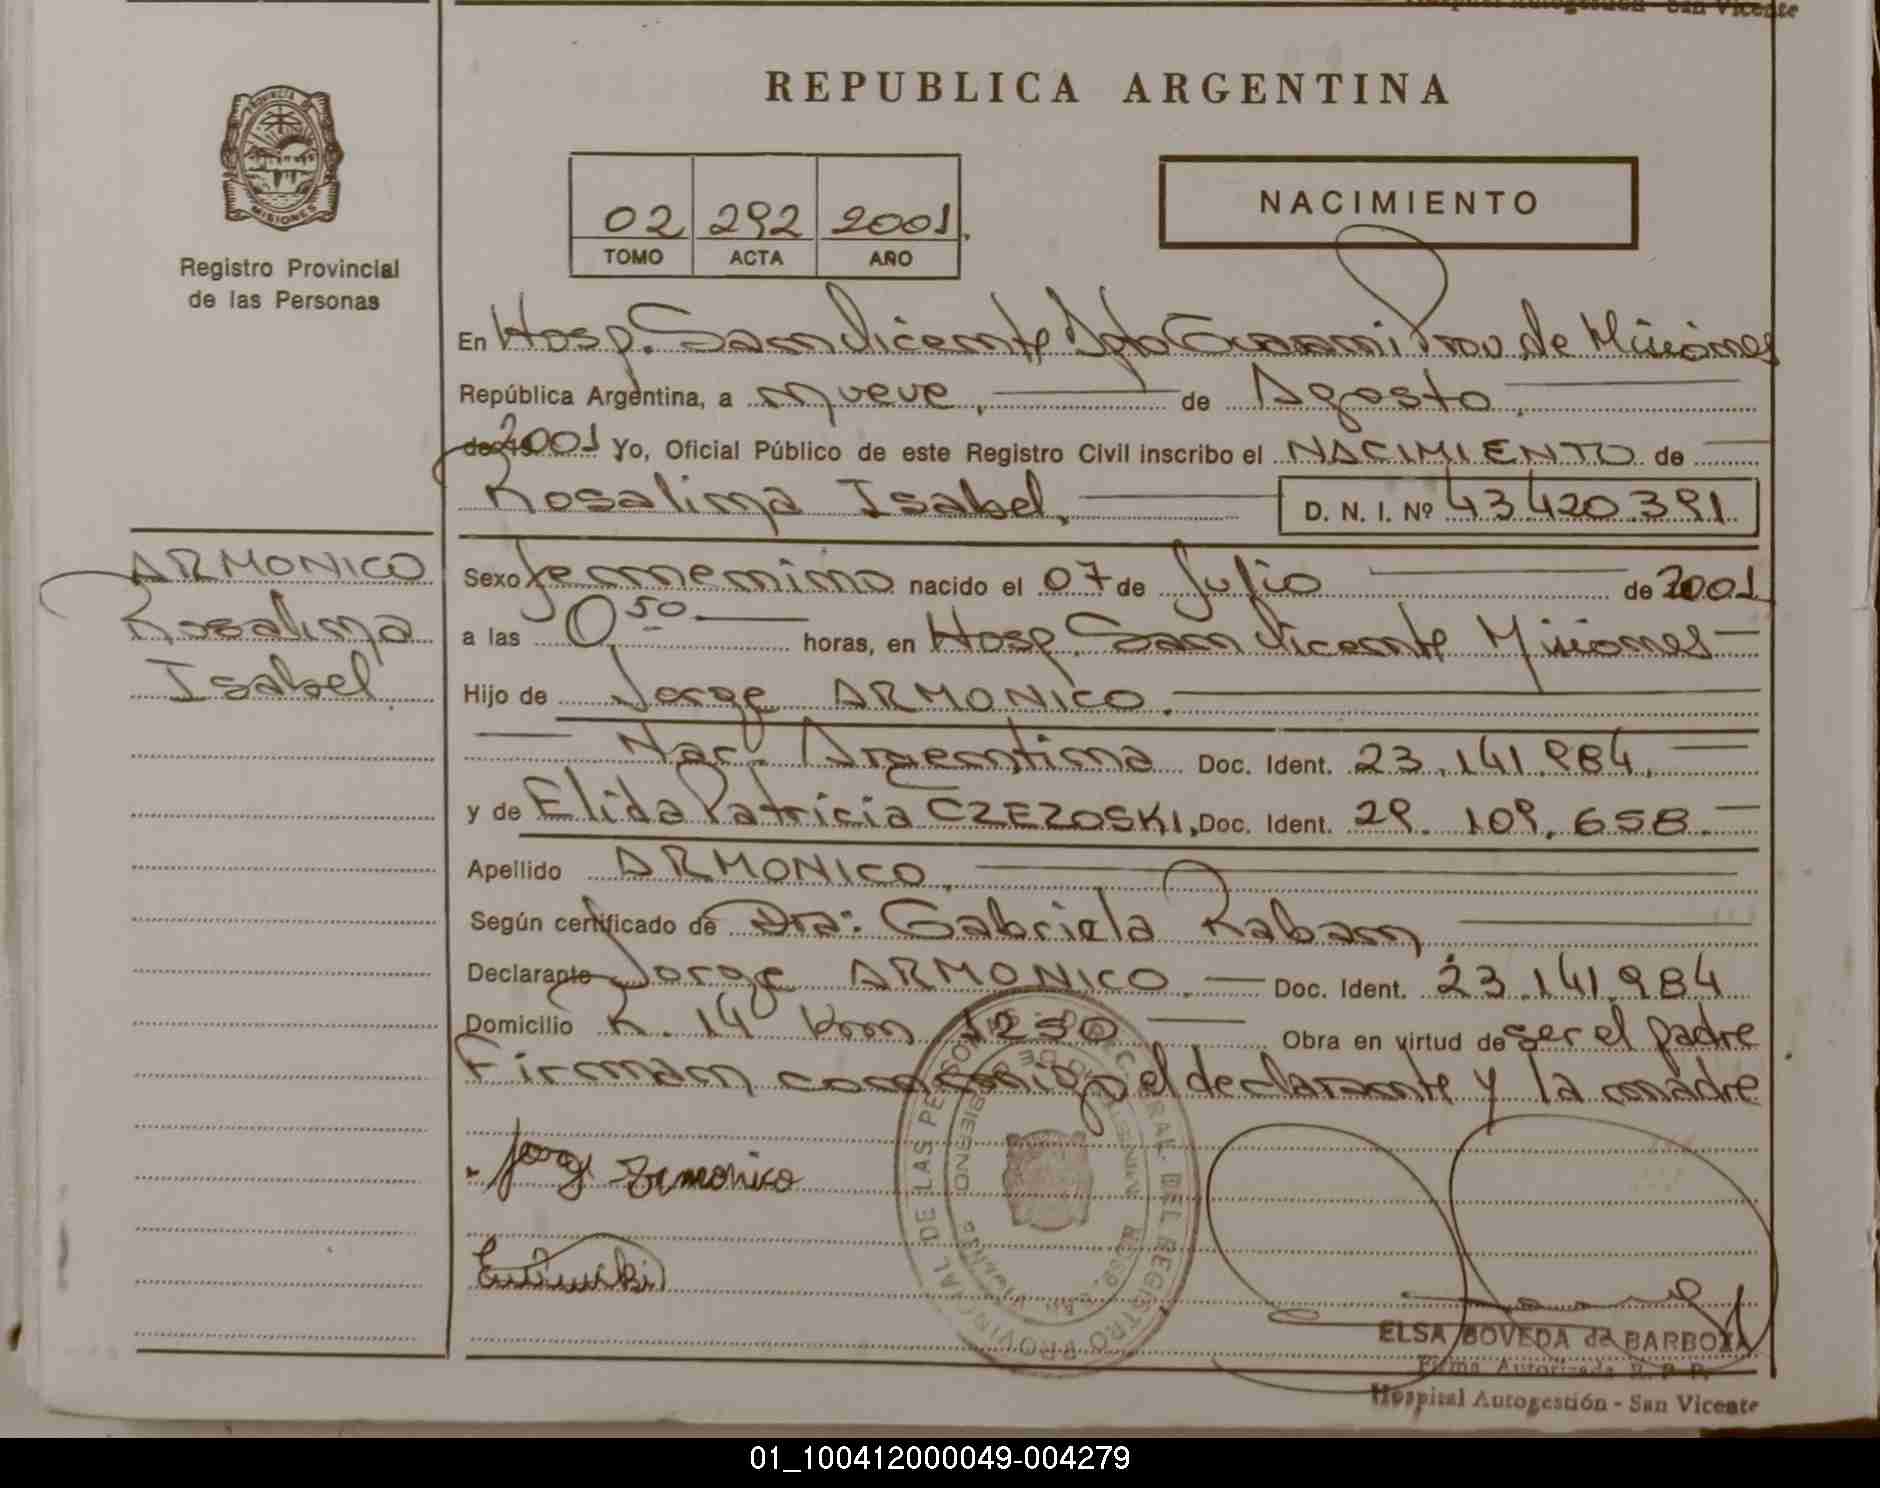 Hospital Autogestión - San Vicente
REPUBLICA ARGENTINA
PROVINCIA
MISIONES
Registro Provincial
de las Personas
02 292 2001.
TOMO ACTA AÑO
NACIMIENTO
En Hosp. San Vicente Dpto Guarani Prov. de Misiones
República Argentina, a nueve, de Agosto.
de 2001 Yo, Oficial Público de este Registro Civil inscribo el NACIMIENTO de
Rosalina Isabel, D. N. I. Nº 43.420.391
ARMONICO
Rosalina
Isabel
Sexo femenino nacido el 07 de Julio de 2001
a las 0 50 horas, en Hosp. San Vicente Misiones
Hijo de Jorge ARMONICO.
Nac. Argentina Doc. Ident. 23.141.984.
y de Elida Patricia CZEZOSKI, Doc. Ident. 29.109.658.
Apellido ARMONICO.
Según certificado de Dra: Gabriela Raban
Declarante Jorge ARMONICO. Doc. Ident. 23.141.984
Domicilio R. 14 km 1250 Obra en virtud de ser el padre
Firman conmigo el declarante y la madre
Jorge Armonico
ELSA BOVEDA de BARBOZA
Firma Autorizada R. P. P.
Hospital Autogestión - San Vicente
01_100412000049-004279